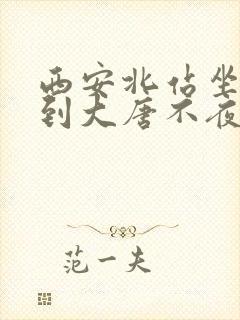 西安北站坐
到大唐不夜
范一夫